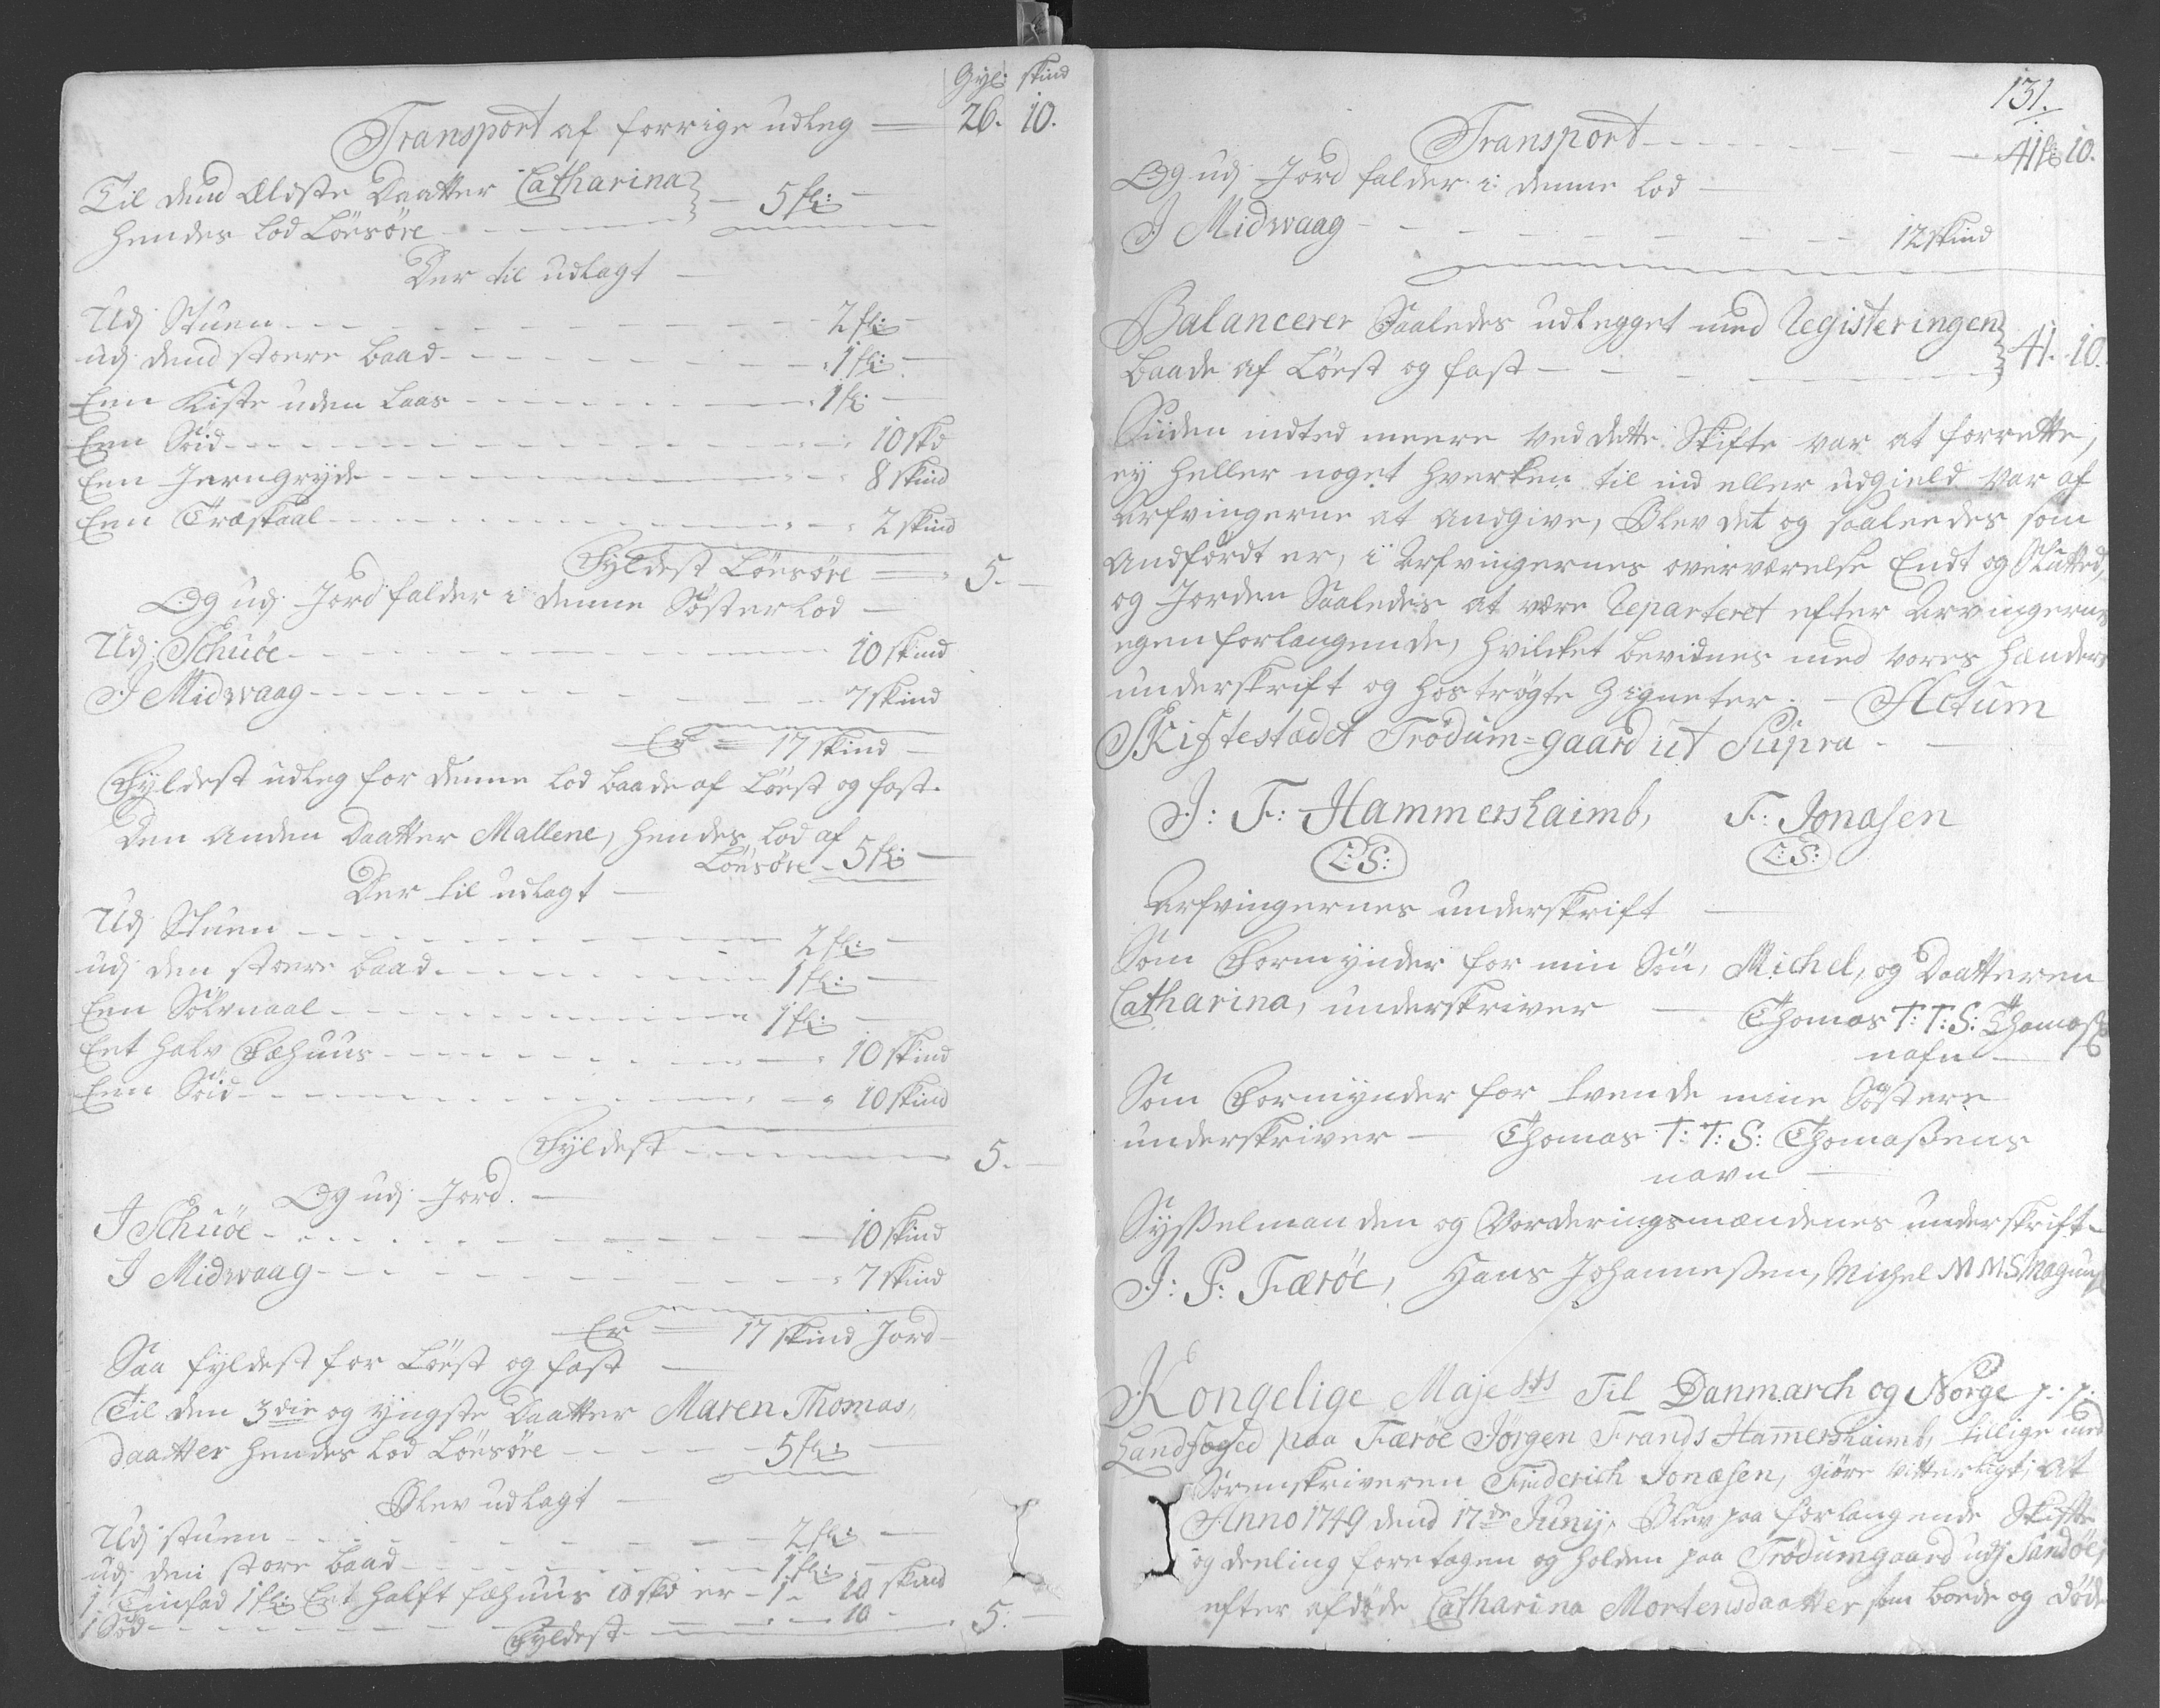 Gyl: skind
Transport af forrige udleg — 26. 10.
Til dend Ældste Daatter Catharina
hendes lod Löesöre — 5 fl:
Der til udlagt —
Udj Stuen — 2 fl:
udj dend stoere baad — 1 fl:
Een Kiste uden laas — 1 fl:
Een Söid — 10 skd
Een Jerngryde — 8 skind
Een Træskaal — 2 skind
Fyldest Löesöre — 5. —
Og udj Jord falder i denne Söster lod —
Udj Schuöe — 10 skind
I Midwaag — 7 skind
Er = 17 skind —
Fyldest udleg for denne lod baade af Löest og fast.
Den Anden Daatter Mallene, hendes lod af
Löesöre — 5 fl: —
Der til udlagt —
Udj Stuen — 2 fl: —
udj den stoere baad — 1 fl: —
Een Sölvnaal — 1 fl: —
Eet halv Fæhuus — 10 skind
Een Söid — 10 skind
Fyldest — 5. —
Og udj Jord. —
I Schuöe — 10 skind
I Midwaag — 7 skind
Er = 17 skind Jord —
Saa fyldest for Löest og fast —
Til den 3die og Yngste Daatter Maren Thomas,
daatter hendes lod Löesöre — 5 fl: —
Blev udlagt —
Udj stuen — 2 fl: —
udj den store baad — 1 fl: —
1 Tinfad 1 fl: Eet halft fæhuus 10 skd er — 1 — 10 skind
1 Söd — 10 —
Fyldest — 5. —
131.
Transport — 41 fl: 10.
Og udj Jord falder i denne lod —
I Midwaag — 12 skind
Balancerer Saaledes udlegget med Registeringen
baade af Löest og fast — 41. 10.
Siiden indted meere ved dette Skifte var at forrette,
ey heller noget hverken til ind eller udgield var af
Arfvingerne at Andgive, Blev det og saaleedes som
Andfördt er, i Arfvingernes overværelse Endt og Slutted,
og Jorden Saaledes at være Reparteret efter Arvingernes
egen forlangende, hvilcket bevidnes med vores hænders
underskrift og hoströgte Zigneter. — Actum
Skiftestædet Trödum=gaard ut Supra. —
J: F: Hammershaimb, F: Jonasen
L:S: L:S:
Arfvingernes underskrift —
Som Formynder for min Sön, Michel, og Daatteren
Catharina, underskriver — Thomas T: T: S: Thomasß
nafn —
Som Formynder for tvende mine Söstere
underskriver — Thomas T: T: S: Thomaßens
navn —
Sysselmanden og Vorderingsmændenes underskrift —
J: P: Færöe, Hans Johanneßen, Michel M M S Magnus
Kongelige Majests Til Danmarch og Norge p: p:
Landfoged paa Færöe Jörgen Frands Hamershaimb, tillige med
Sörenskriveren Friderich Jonæsen, giöre vitterligt, at
Anno 1749 dend 17de Junij, Blev paa forlangende Skifte
og deeling foretagen og holden paa Trödumgaard udj Sandöe,
efter afdöde Catharina Mortensdaatter som boede og döde